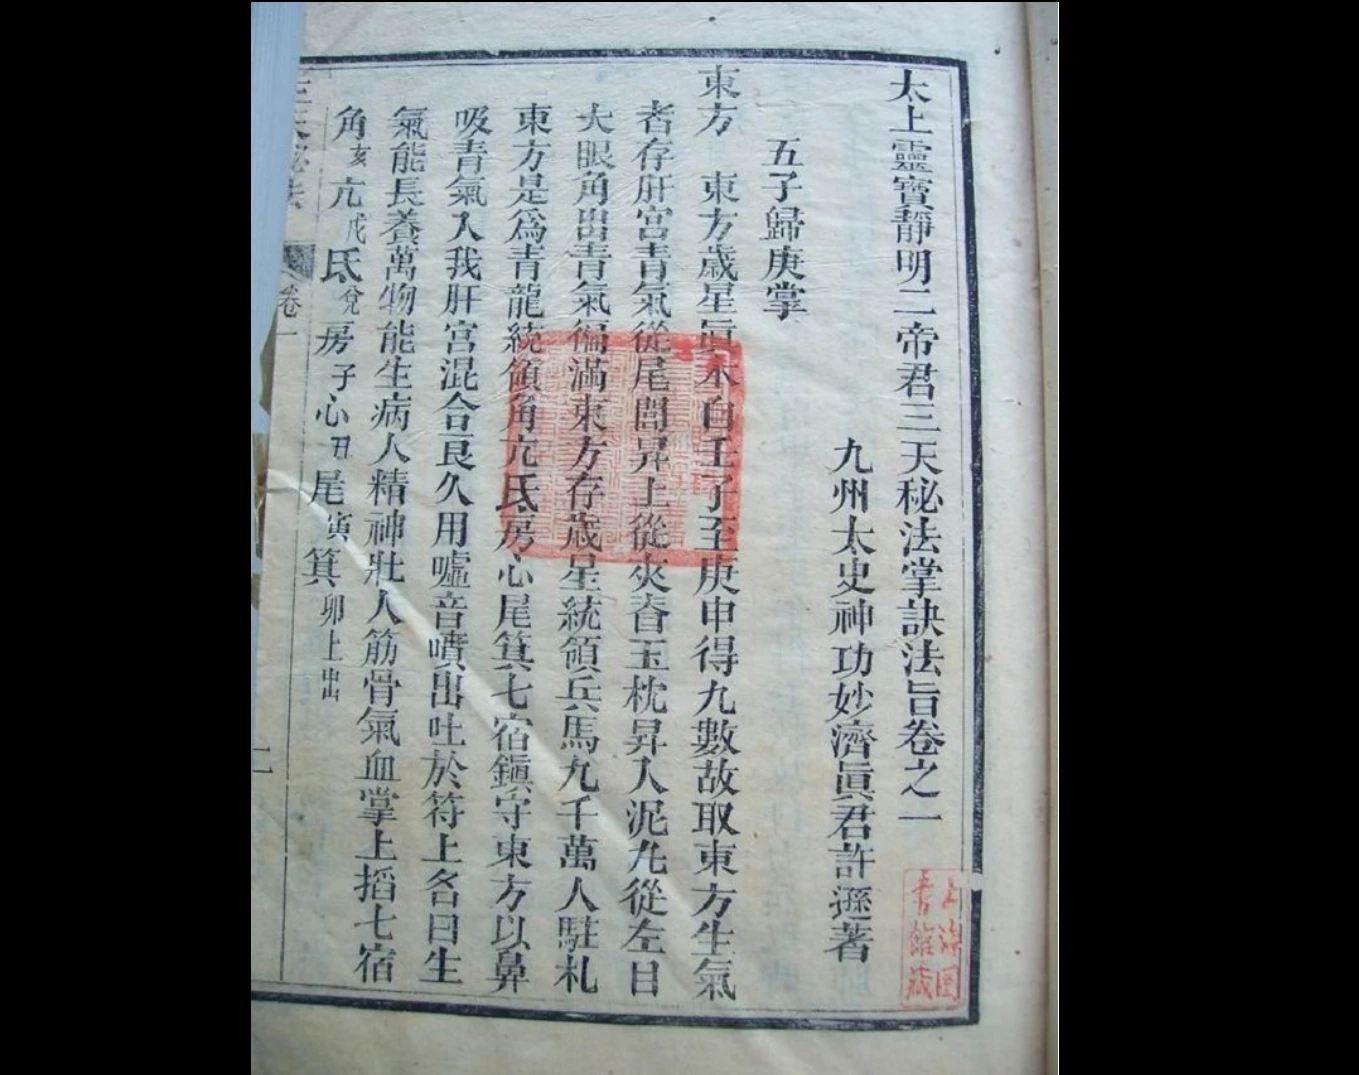 太上靈寶靜明二帝君三天秘法掌訣法旨卷之一
九州太史神功妙濟眞君許遜著
五子歸庚掌
東方 東方歲星眞木自壬子至庚申得九數故取東方生氣
者存肝宮青氣從尾閭昇上從夾脊玉枕昇入泥丸從左日
大眼角出青氣徧滿東方存歲星統領兵馬九千萬人駐札
東方是爲青龍統領角亢氐房心尾箕七宿鎭守東方以鼻
吸青氣入我肝宮混合良久用噓音噴出吐於符上名曰生
氣能長養萬物能生病人精神壯人筋骨氣血掌上搯七宿
角亥亢戌氐兌房子心丑尾寅箕卯上出
三天秘法 卷一 二
上海圖書館藏